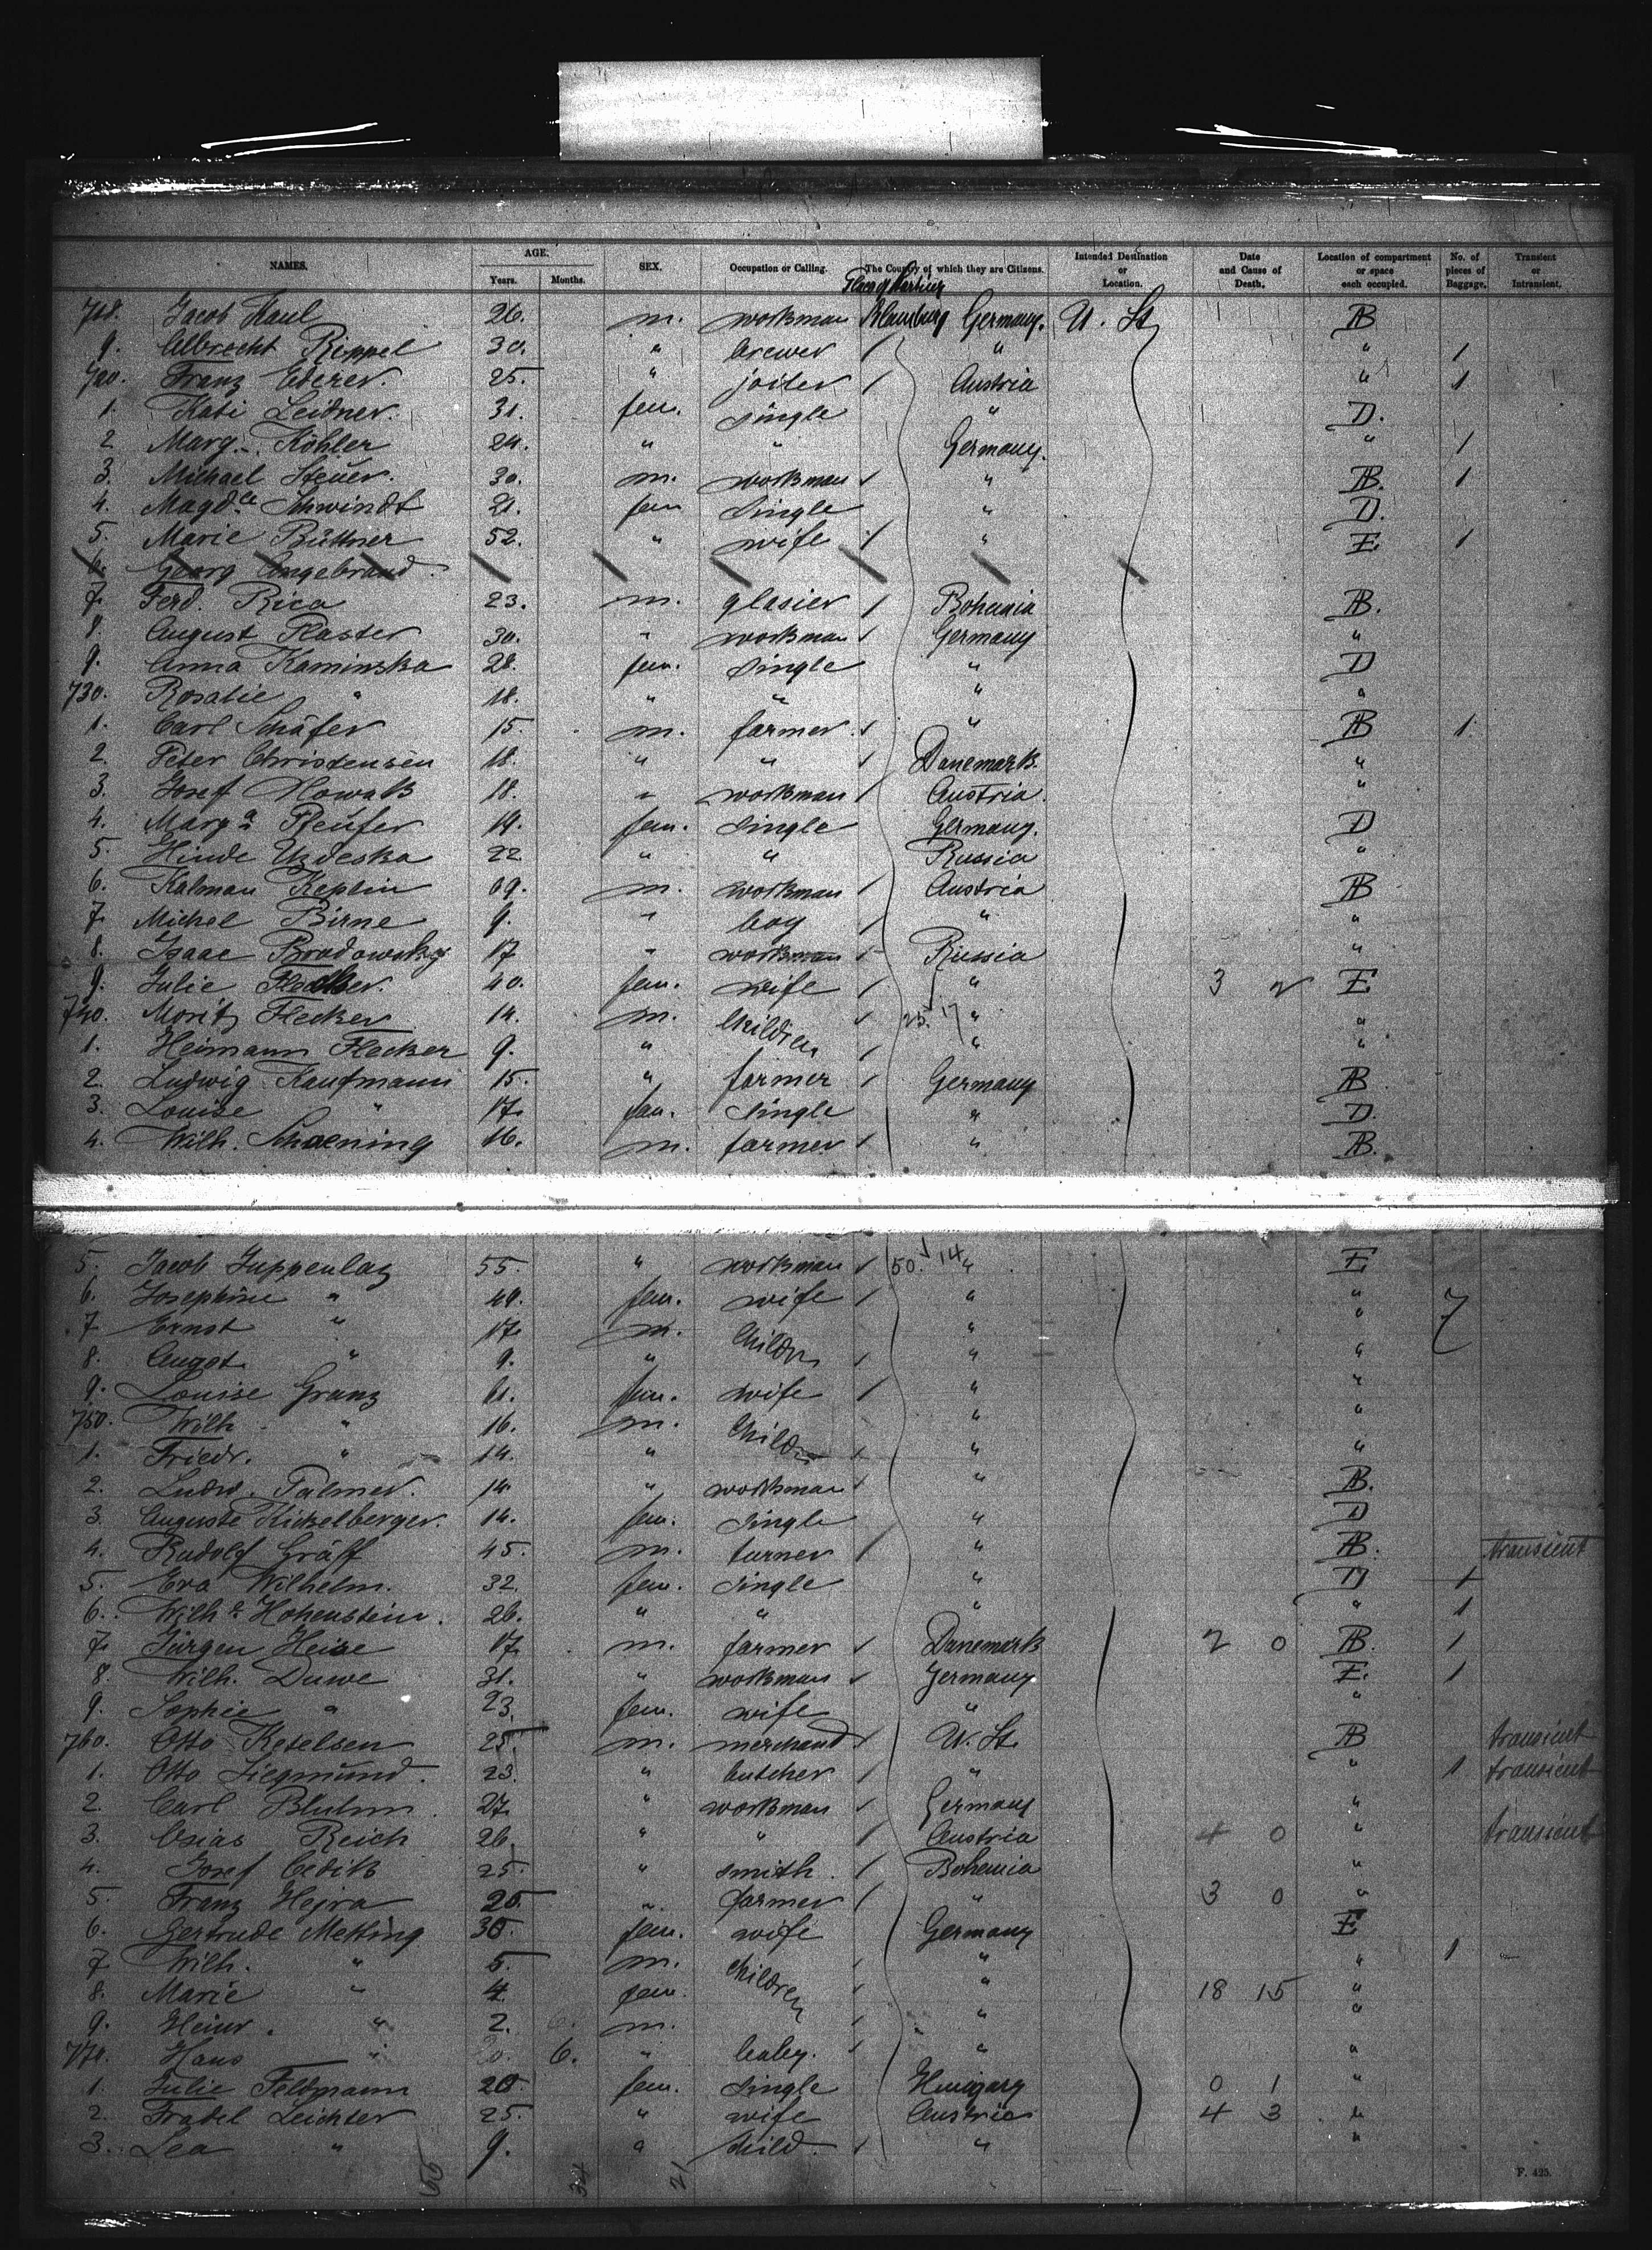 NAMES. AGE. Years. Months. SEX. Occupation or Calling. The Country of which they are Citizens. Intended Destination or Location. Date and Cause of Death. Location of compartment or space each occupied. No. of pieces of Baggage. Transient or Intransient.
718. Jacob Kaul 26. m. workman Germany. U. St. AB
9. Albrecht Rippel 30. " brewer / " " 1
720. Franz Ederer. 25. " / Austria " 1
1. Kati Leidner. 31. fem. single " D.
2. Marg. Köhler 24. " " Germany. " 1
3. Michael Steuer. 30. m. workman / " AB. 1
4. Magd.a Schwindt 21. fem single " D.
5. Marie Büttner 52. " wife / " E. 1
6. Georg Angebrand.
7. Ferd. Rica 23. m. glasier / Bohemia AB.
8. August Flaster 30. " workman / Germany "
9. Anna Kaminska 28. fem. single " D
730. Rosalie " 18. " " " "
1. Carl Schäfer 15. m. farmer / " AB 1.
2. Peter Christensen 18. " " / Danemark. "
3. Josef Nowak 18. " workman / Austria. "
4. Marg.a Pfeufer 19. fem. single Germany. D
5. Hinde Uzdeska 22 " " Russia "
6. Kalman Keplin 69. m. workman / Austria AB
7. Michel Birne 9. " boy / " "
8. Isaac Brodowsky 17 " workman / Russia "
9. Julie Flecker. 40. fem. wife / " 3 2 E
740. Moritz Flecker 14. m. Children / 25. 17 " "
1. Heimann Flecker 9. " / " "
2. Ludwig Kaufmann 15. " farmer / Germany AB
3. Louise " 17. fem. single " D.
4. Wilh. Schoening 16. m. farmer / " AB.
5. Jacob Juppenlaz 55. " workman / 50. 14 " E
6. Josephine " 49. fem. wife / " "
7 Ernst " 17. m. Children " " 7
8. August. " 9. " / " "
9. Louise Granz 61. fem. wife / " "
750. Wilh. " 16. m. Children " "
1. Friedr. " 14. " / " "
2. Ludw. Palmer. 14. " workman / " AB.
3. Auguste Kickelberger. 14. fem. single " D
4. Rudolf Gräff 45. m. turner / " AB. transient
5. Eva Wilhelm. 32. fem. single " D 1
6. Wilh.e Hohenstein. 26. " " " " 1
7. Jürgen Heise 17. m. farmer / Danemark 2 0 AB. 1
8. Wilh. Duwe 31. " workman / Germany E. 1
9. Sophie " 23. fem. wife " "
760. Otto Ketelsen 25. m. merchand / U. St. AB transient
1. Otto Siegmund. 23. " butcher / " " 1 transient
2. Carl Bluhm. 27. " workman / Germany "
3. Osias Reich 26. " " / Austria 4 0 " transient
4. Josef Cedik 25. " smith. / Bohemia "
5. Franz Hejra 25. " farmer / " 3 0 "
6. Gertrude Metting 30. fem. wife Germany E
7 Wilh. " 5. m. Children / " " 1
8. Marie " 4. fem. / " 18 15 "
9. Heinr. " 2. m. / " "
770. Hans " 6. " baby. / " "
1. Julie Feldmann 20. fem. single Hungary 0 1 "
2. Fradel Leichter 25. " wife Austria 4 3 "
3. Lea " 9. " child. / " "
F. 425.